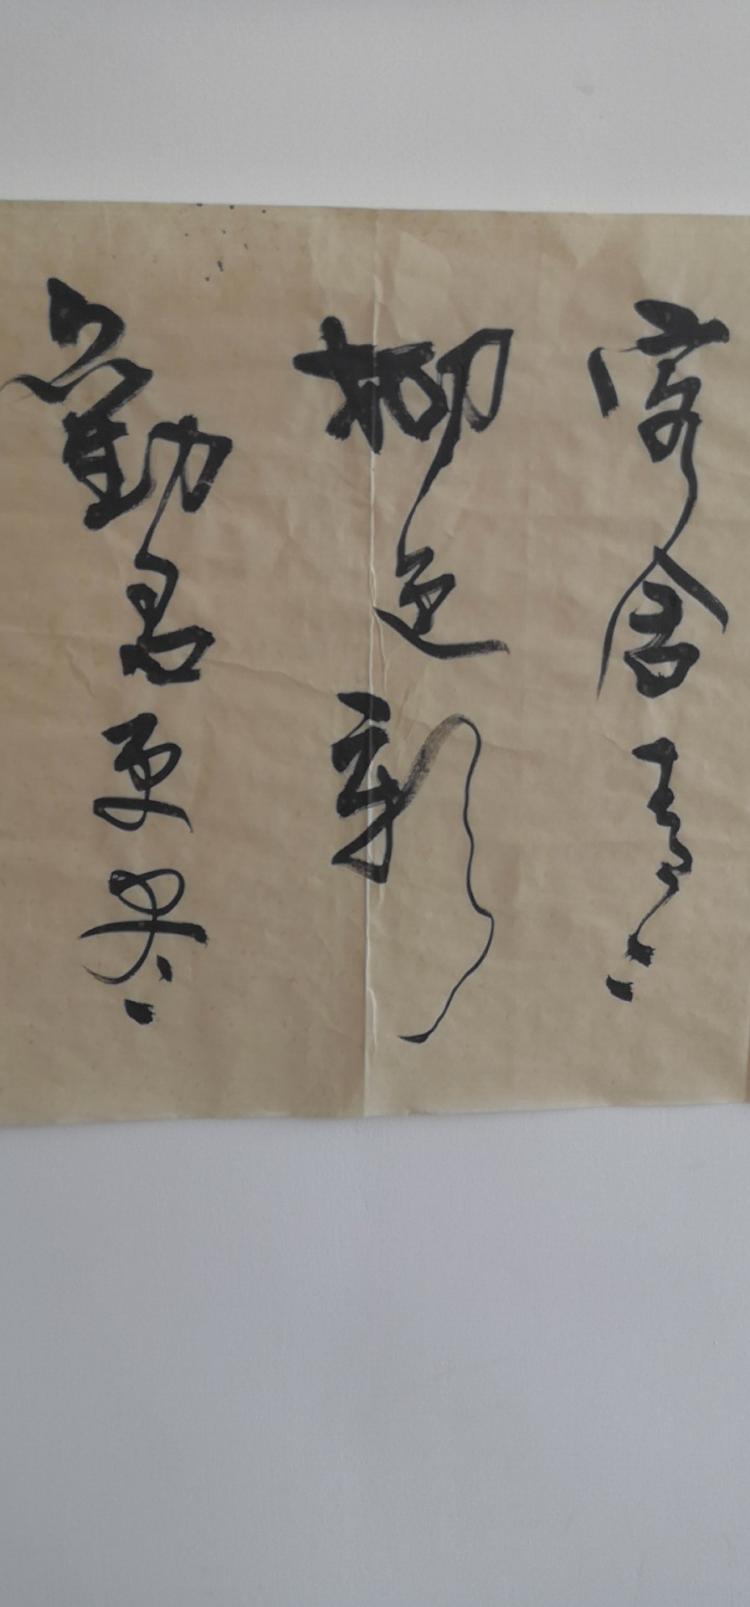 客舍青青
柳色新
勸君更尽